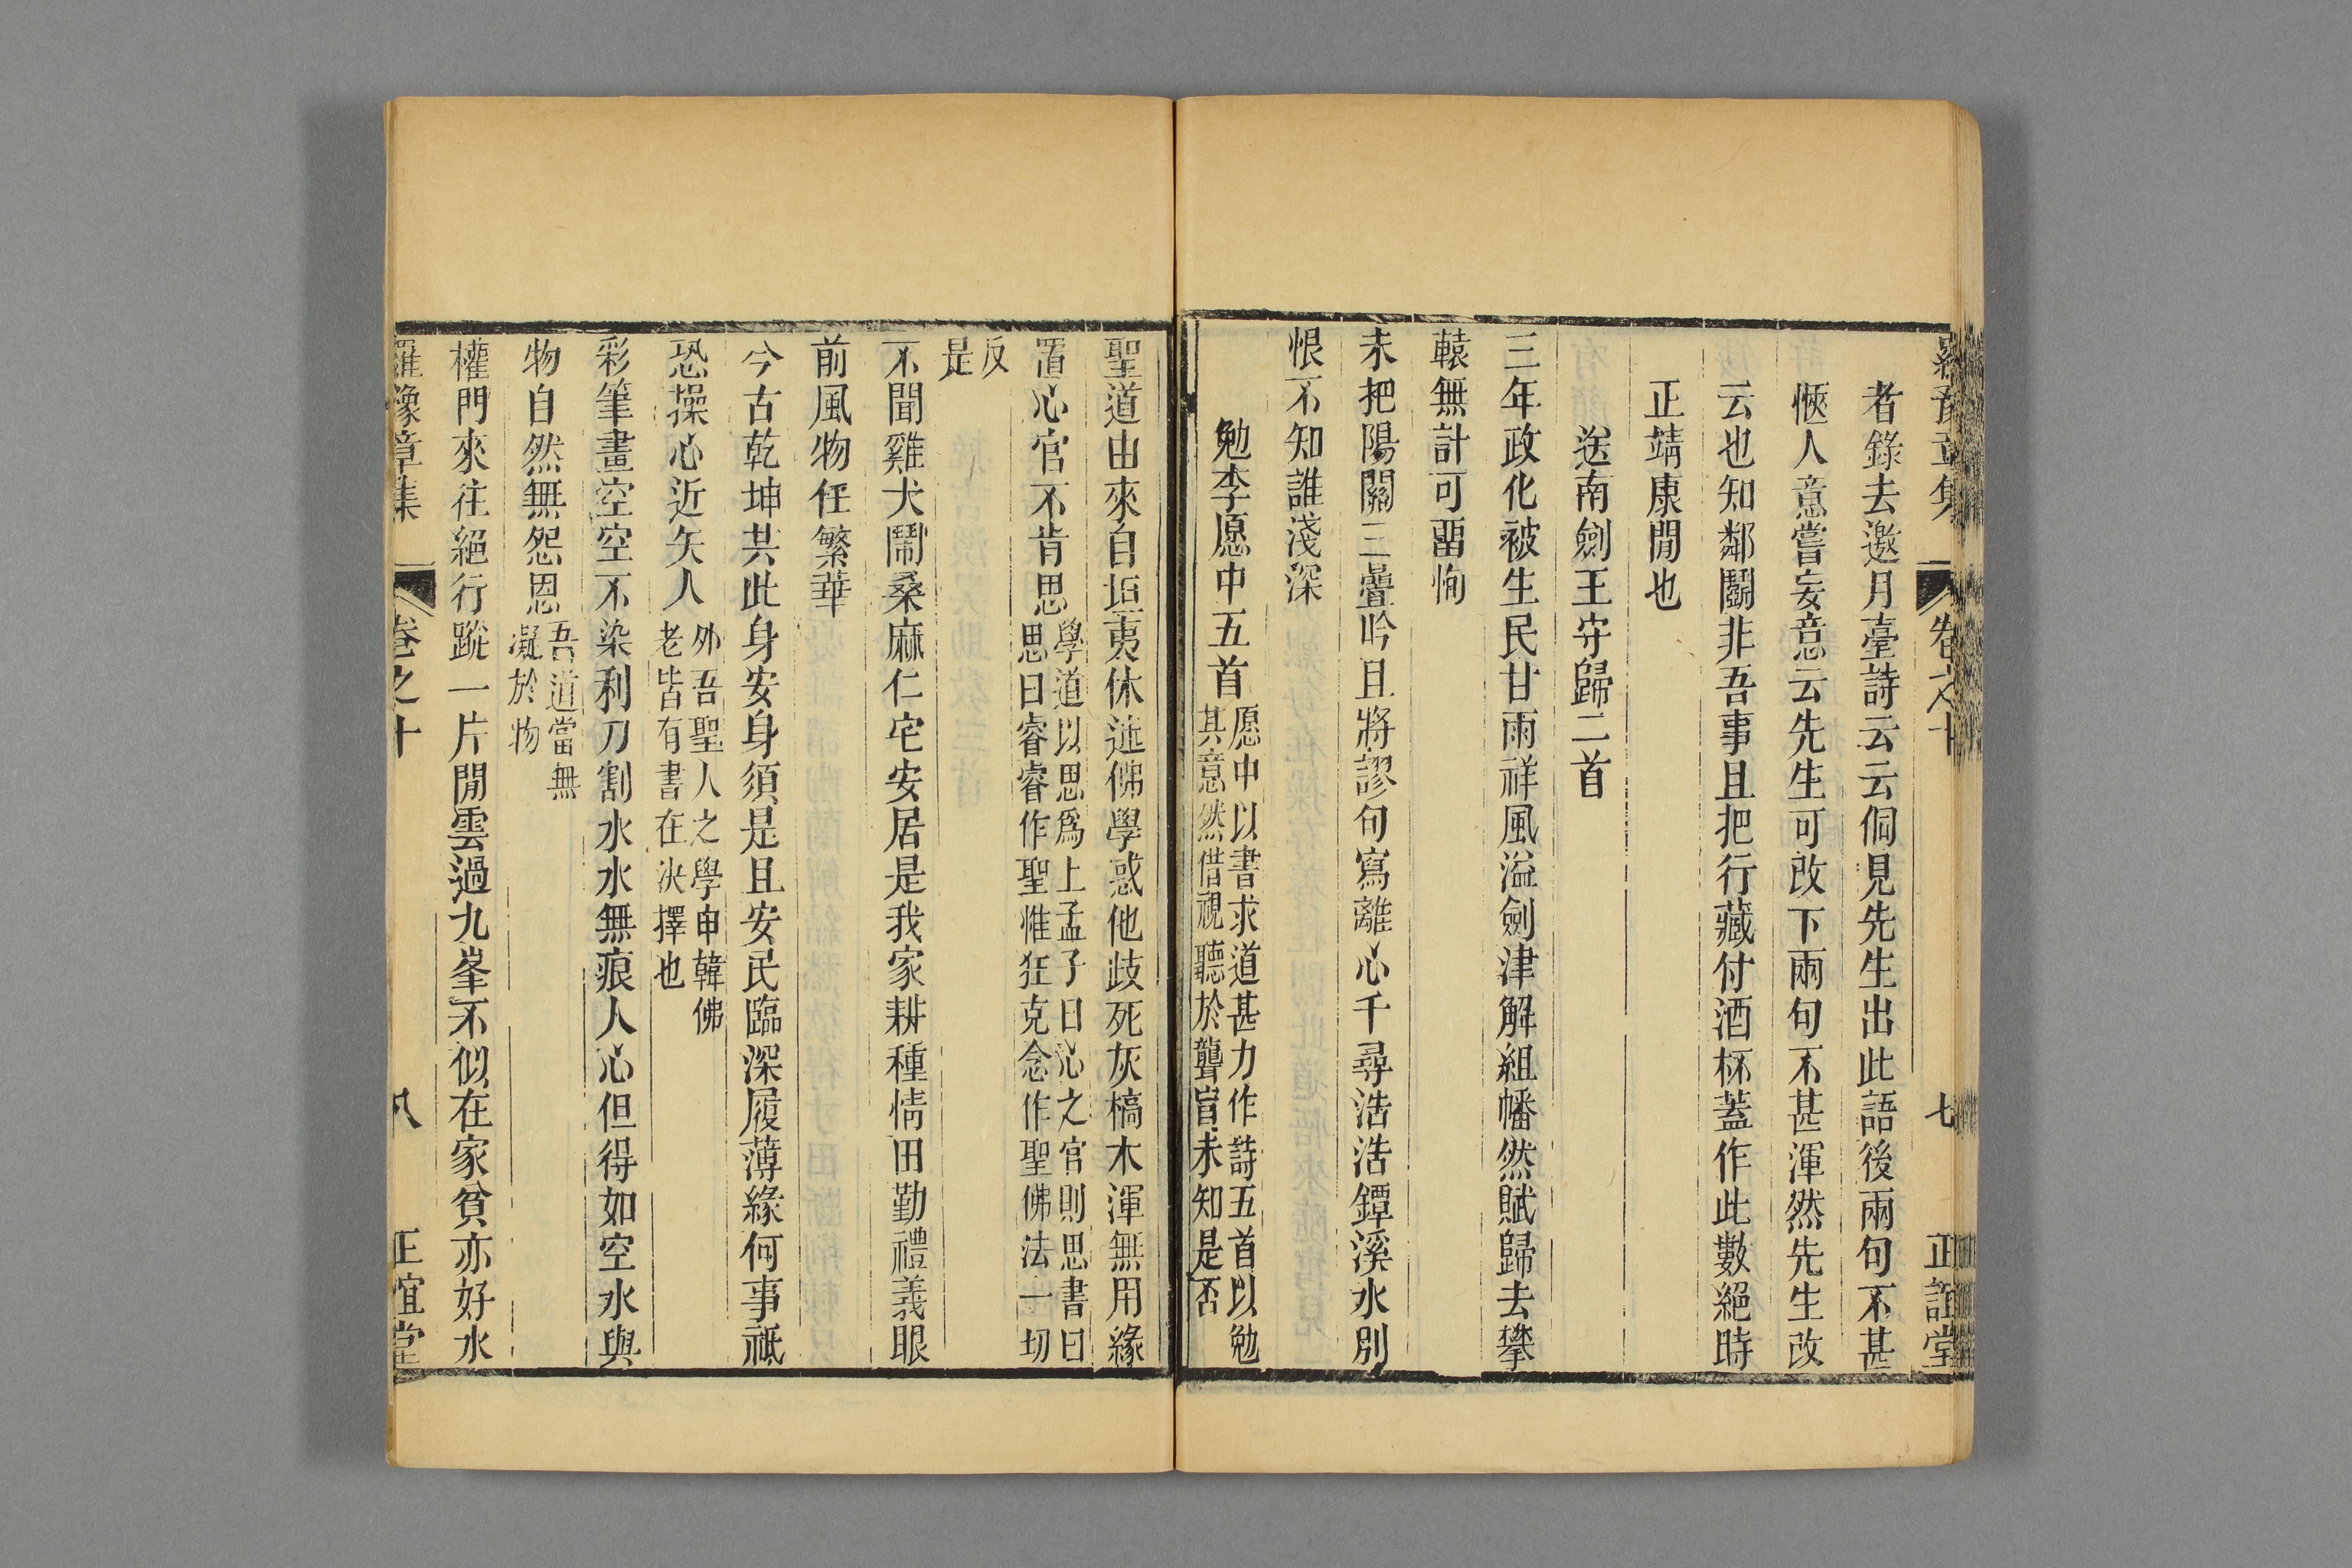 羅豫章集 卷之十 七 正誼堂
者錄去邀月臺詩云云侗見先生出此語後兩句不甚
愜人意嘗妄意云先生可改下兩句不甚渾然先生改
云也知鄰鬭非吾事且把行藏付酒杯蓋作此數絕時
正靖康閒也
送南劍王守歸二首
三年政化被生民甘雨祥風溢劍津解組幡然賦歸去攀
轅無計可畱恂
未把陽關三疊吟且將謬句寫離心千尋浩浩鐔溪水別
恨不知誰淺深
勉李愿中五首愿中以書求道甚力作詩五首以勉
其意然借視聽於聾盲未知是否
聖道由來自坦夷休迷佛學惑他歧死灰槁木渾無用緣
置心官不肯思學道以思爲上孟子曰心之官則思書曰
思曰睿睿作聖惟狂克念作聖佛法一切
反
是
不聞雞犬鬧桑麻仁宅安居是我家耕種情田勤禮義眼
前風物任繁華
今古乾坤共此身安身須是且安民臨深履薄緣何事祗
恐操心近矢人外吾聖人之學申韓佛
老皆有書在決擇也
彩筆畫空空不染利刀割水水無痕人心但得如空水與
物自然無怨恩吾道當無
凝於物
權門來往絕行蹤一片閒雲過九峯不似在家貧亦好水
羅豫章集 卷之十 八 正誼堂